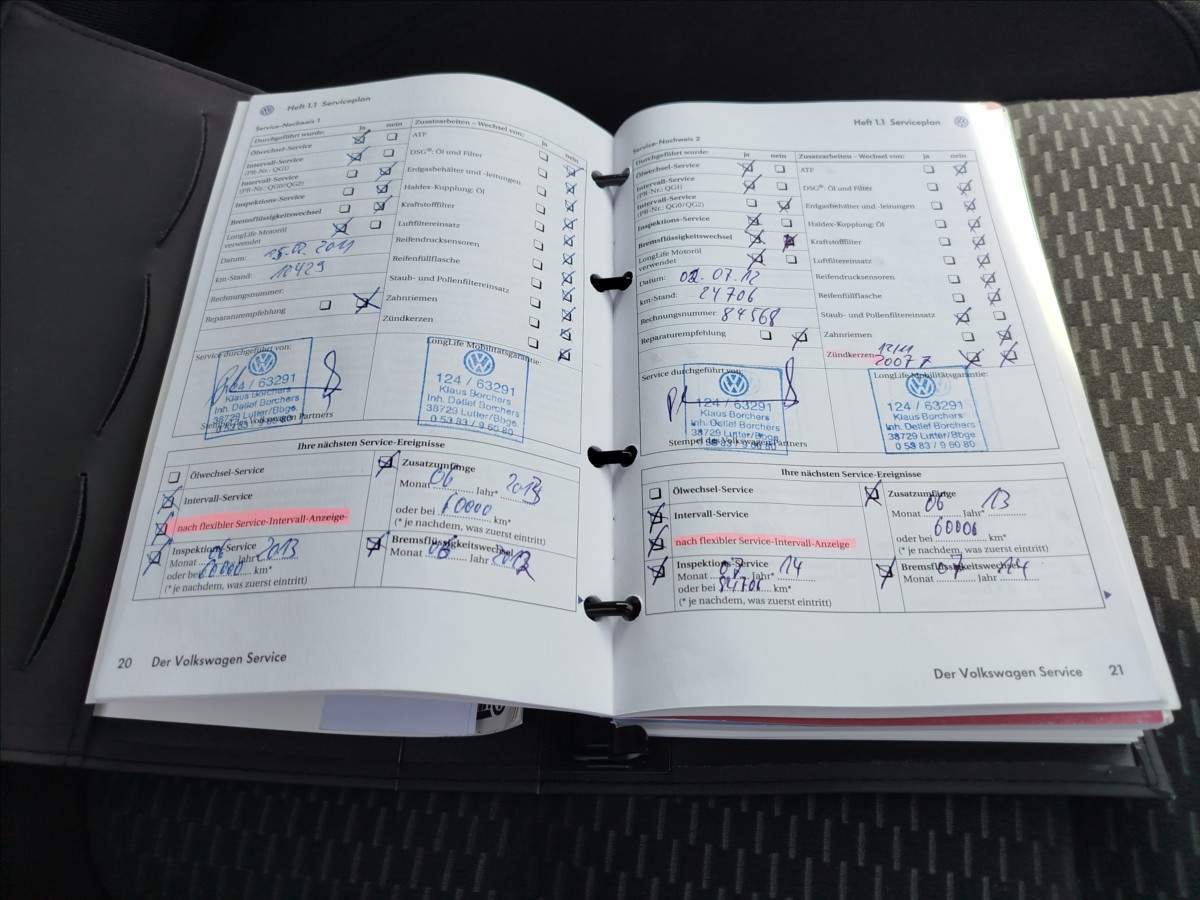 Heft 1.1 Serviceplan
Service-Nachweis 1
Durchgeführt wurde: ja nein
Ölwechsel-Service
Intervall-Service
(PR-Nr.: QG1)
Intervall-Service
(PR-Nr.: QG0/QG2)
Inspektions-Service
Bremsflüssigkeitswechsel
LongLife Motoröl
verwendet
Datum: 2011
km-Stand: 10429
Rechnungsnummer:
Reparaturempfehlung
Zusatzarbeiten – Wechsel von: ja nein
ATF
DSG®: Öl und Filter
Erdgasbehälter und -leitungen
Haldex-Kupplung: Öl
Kraftstofffilter
Luftfiltereinsatz
Reifendrucksensoren
Reifenfüllflasche
Staub- und Pollenfiltereinsatz
Zahnriemen
Zündkerzen
Service durchgeführt von:
124 / 63291
Klaus Borchers
Inh. Detlef Borchers
38729 Lutter/Bbge.
0 53 83 / 9 60 80
Stempel des Volkswagen Partners
LongLife Mobilitätsgarantie:
124 / 63291
Klaus Borchers
Inh. Detlef Borchers
38729 Lutter/Bbge.
0 53 83 / 9 60 80
Ihre nächsten Service-Ereignisse
Ölwechsel-Service
Intervall-Service
nach flexibler Service-Intervall-Anzeige
Inspektions-Service
Monat 06 Jahr* 2013
oder bei 60000 km*
(* je nachdem, was zuerst eintritt)
Zusatzumfänge
Monat 06 Jahr* 2013
oder bei 60000 km*
(* je nachdem, was zuerst eintritt)
Bremsflüssigkeitswechsel
Monat 06 Jahr
20 Der Volkswagen Service
Heft 1.1 Serviceplan
Service-Nachweis 2
Durchgeführt wurde: ja nein
Ölwechsel-Service
Intervall-Service
(PR-Nr.: QG1)
Intervall-Service
(PR-Nr.: QG0/QG2)
Inspektions-Service
Bremsflüssigkeitswechsel
LongLife Motoröl
verwendet
Datum: 02.07.12
km-Stand: 24706
Rechnungsnummer 84568
Reparaturempfehlung
Zusatzarbeiten – Wechsel von: ja nein
ATF
DSG®: Öl und Filter
Erdgasbehälter und -leitungen
Haldex-Kupplung: Öl
Kraftstofffilter
Luftfiltereinsatz
Reifendrucksensoren
Reifenfüllflasche
Staub- und Pollenfiltereinsatz
Zahnriemen
Zündkerzen
Service durchgeführt von:
124 / 63291
Klaus Borchers
Inh. Detlef Borchers
38729 Lutter/Bbge
0 53 83 / 9 60 80
Stempel des Volkswagen Partners
LongLife Mobilitätsgarantie:
124 / 63291
Klaus Borchers
Inh. Detlef Borchers
38729 Lutter/Bbge
0 53 83 / 9 60 80
Ihre nächsten Service-Ereignisse
Ölwechsel-Service
Intervall-Service
nach flexibler Service-Intervall-Anzeige
Inspektions-Service
Monat 07 Jahr* 14
oder bei 84706 km*
(* je nachdem, was zuerst eintritt)
Zusatzumfänge
Monat 06 Jahr* 13
oder bei 60006 km*
(* je nachdem, was zuerst eintritt)
Bremsflüssigkeitswechsel
Monat 07 Jahr 14
Der Volkswagen Service 21